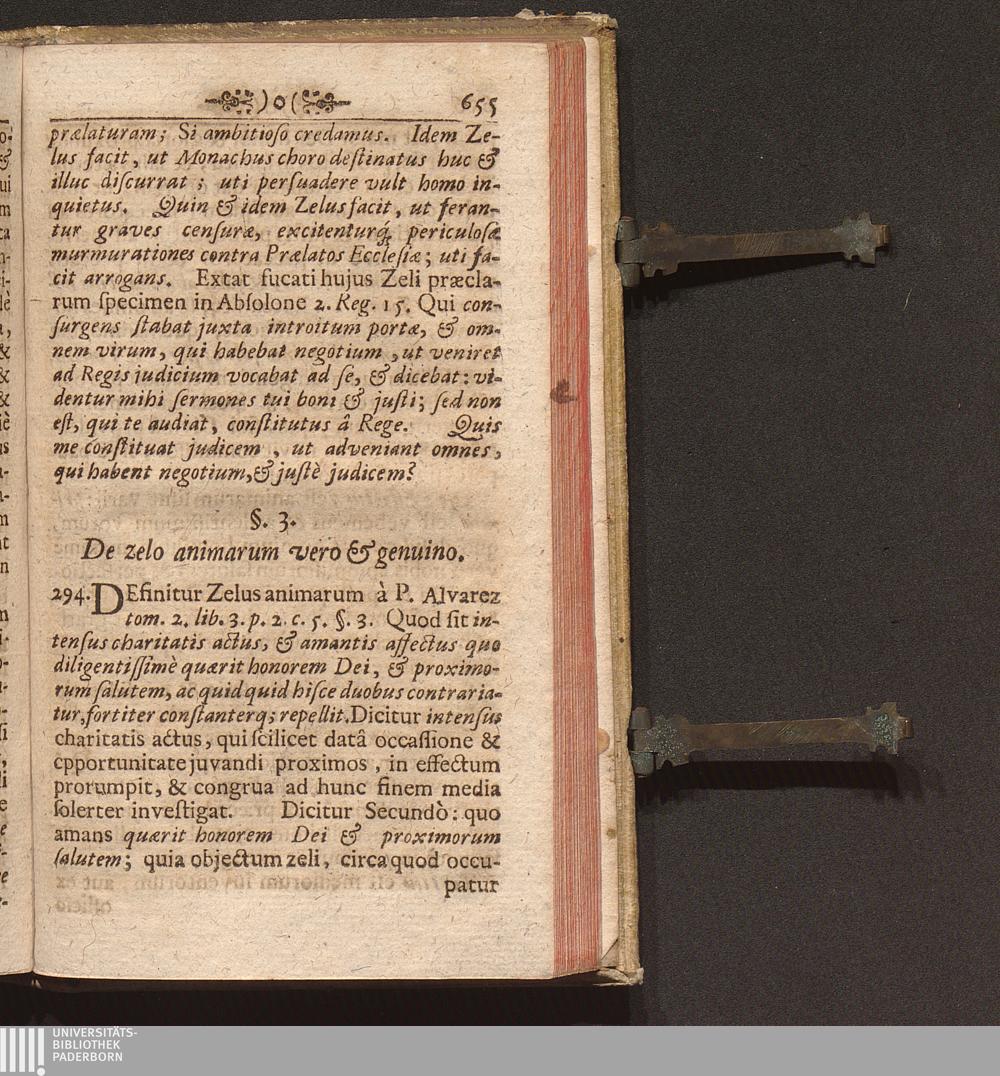 )o( 655
prælaturam; Si ambitioſo credamus. Idem Ze-
lus facit, ut Monachus choro deſtinatus huc &
illuc diſcurrat; uti perſuadere vult homo in-
quietus. Quin & idem Zelus facit, ut feran-
tur graves cenſuræ, excitenturq́; periculoſæ
murmurationes contra Prælatos Eccleſiæ; uti fa-
cit arrogans. Extat fucati hujus Zeli præcla-
rum ſpecimen in Abſolone 2. Reg. 15. Qui con-
ſurgens ſtabat juxta introitum portæ, & om-
nem virum, qui habebat negotium, ut veniret
ad Regis judicium vocabat ad ſe, & dicebat: vi-
dentur mihi ſermones tui boni & juſti; ſed non
eſt, qui te audiat, conſtitutus â Rege. Quis
me conſtituat judicem, ut adveniant omnes,
qui habent negotium, & juſtè judicem?
§. 3.
De zelo animarum vero & genuino.
294. DEfinitur Zelus animarum à P. Alvarez
tom. 2. lib. 3. p. 2. c. 5. §. 3. Quod ſit in-
tenſus charitatis actus, & amantis affectus quo
diligentiſſimè quærit honorem Dei, & proximo-
rum ſalutem, ac quidquid hiſce duobus contraria-
tur, fortiter conſtanterq; repellit. Dicitur intenſus
charitatis actus, qui ſcilicet datâ occaſſione &
opportunitate juvandi proximos, in effectum
prorumpit, & congrua ad hunc finem media
ſolerter inveſtigat. Dicitur Secundò: quo
amans quærit honorem Dei & proximorum
ſalutem; quia objectum zeli, circa quod occu-
patur
UNIVERSITÄTS-
BIBLIOTHEK
PADERBORN